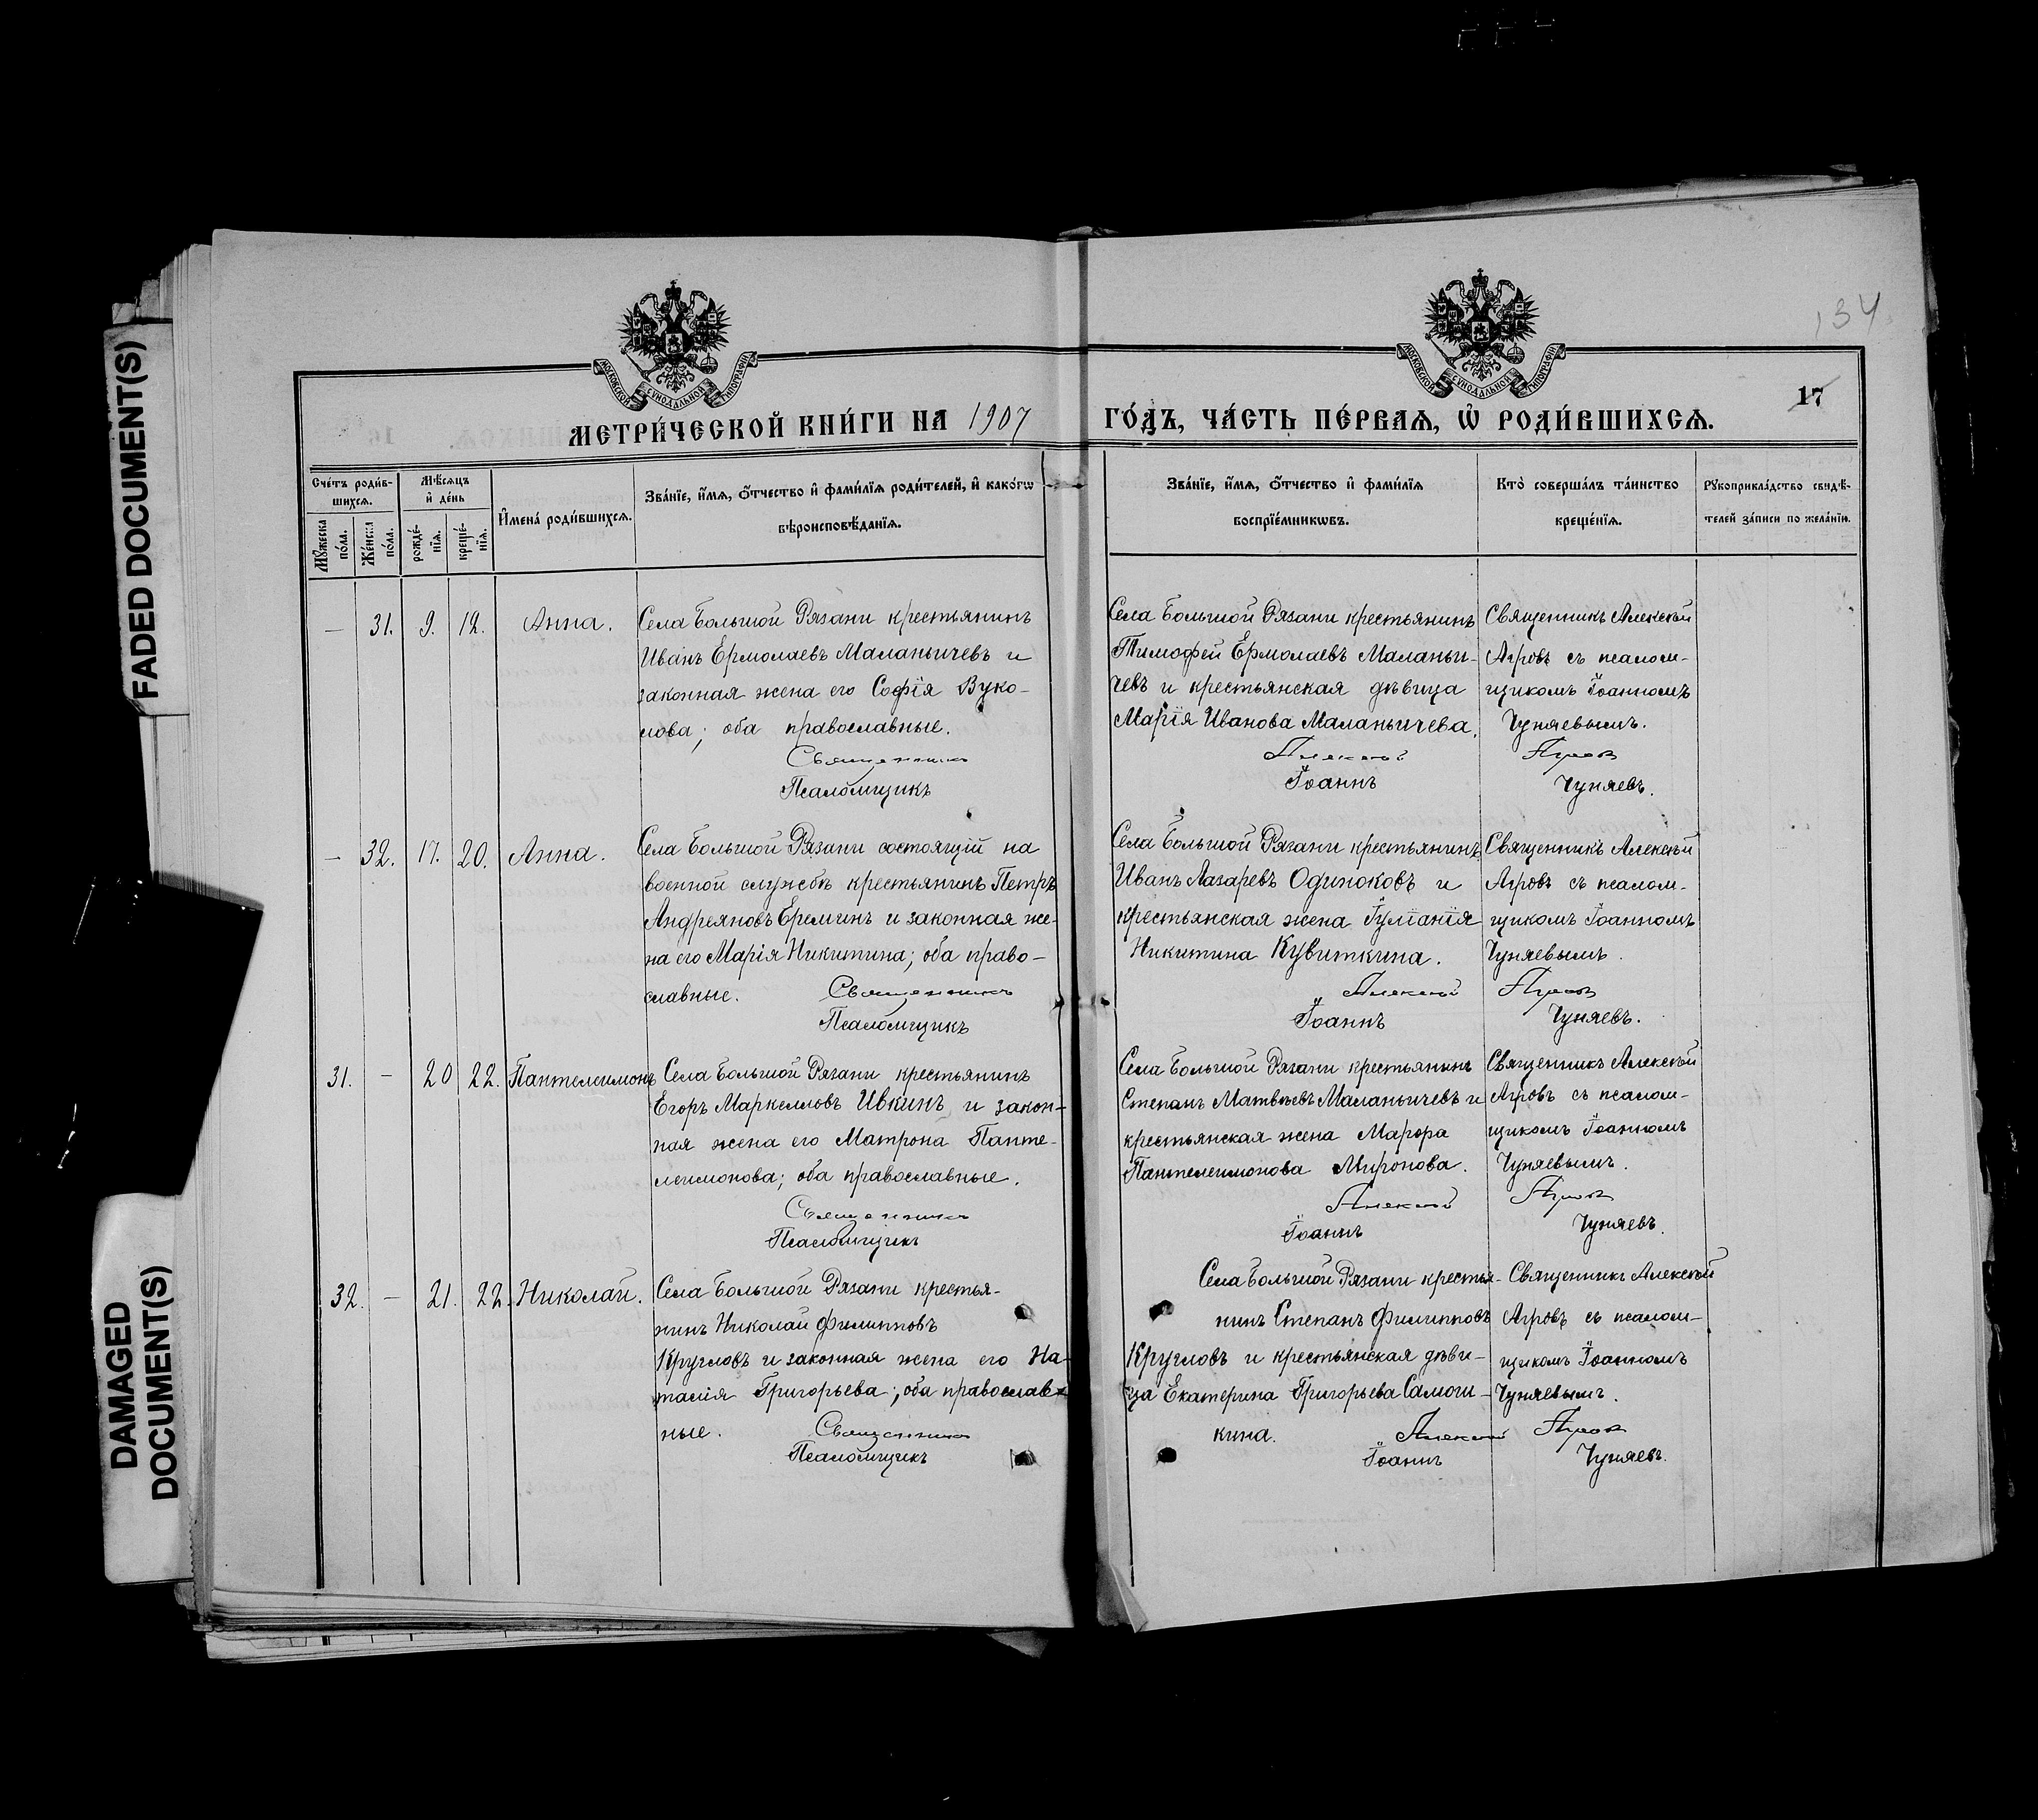 FADED DOCUMENT(S)
DAMAGED
DOCUMENT(S)
134
17
МОСКОВСКОЙ СѴНОДАЛЬНОЙ ТИПОГРАФІИ
МОСКОВСКОЙ СѴНОДАЛЬНОЙ ТИПОГРАФІИ
МЕТРИ́ЧЕСКОЙ КНИ́ГИ НА 1907 ГО́ДЪ, ЧА́СТЬ ПЕ́РВАѦ, Ѡ҆ РОДИ́ВШИХСѦ.
Сче́тъ роди́в-
шихсѧ.
Мꙋ́жеска
по́ла.
Же́нска
по́ла.
Мѣ́сѧцъ
и҆ де́нь
рожде́-
нїѧ.
креще́-
нїѧ.
И҆мена̀ роди́вшихсѧ.
Зва́нїе, и҆́мѧ, ѻ҆́тчество и҆ фами́лїѧ роди́телей, и҆ како́гѡ
вѣроисповѣ́данїѧ.
Зва́нїе, и҆́мѧ, ѻ҆́тчество и҆ фами́лїѧ
воспрїе́мникѡвъ.
Кто̀ соверша́лъ та́инство
креще́нїѧ.
Рꙋкоприкла́дство свидѣ́-
телей за́писи по жела́нїю.
— 31. 9. 12. Анна.
Села Большой Рязани крестьянинъ
Иванъ Ермолаевъ Маланьичевъ и
законная жена его Софія Вуко-
лова; оба православные.
Священникъ
Псаломщикъ
Села Большой Рязани крестьянинъ
Тимофей Ермолаевъ Маланьи-
чевъ и крестьянская дѣвица
Марія Иванова Маланьичева.
Алексѣй
Іоаннъ
Священникъ Алексѣй
Агровъ съ псалом-
щикомъ Іоанномъ
Чуняевымъ.
Агровъ
Чуняевъ.
— 32. 17. 20. Анна.
Села Большой Рязани состоящій на
военной службѣ крестьянинъ Петръ
Андреяновъ Ереминъ и законная же-
на его Марія Никитина; оба право-
славные. Священникъ
Псаломщикъ
Села Большой Рязани крестьянинъ
Иванъ Лазаревъ Одиноковъ и
крестьянская жена Іуліанія
Никитина Кувиткина.
Алексѣй
Іоаннъ
Священникъ Алексѣй
Агровъ съ псалом-
щикомъ Іоанномъ
Чуняевымъ.
Агровъ
Чуняевъ.
31. — 20 22. Пантелеимонъ
Села Большой Рязани крестьянинъ
Егоръ Маркелловъ Ивкинъ и закон-
ная жена его Матрона Панте-
леимонова; оба православные.
Священникъ
Псаломщикъ
Села Большой Рязани крестьянинъ
Степанъ Матвѣевъ Маланьичевъ и
крестьянская жена Марфа
Пантелеимонова Миронова.
Алексѣй
Іоаннъ
Священникъ Алексѣй
Агровъ съ псалом-
щикомъ Іоанномъ
Чуняевымъ.
Агровъ
Чуняевъ.
32. — 21. 22. Николай.
Села Большой Рязани крестья-
нинъ Николай Филипповъ
Кругловъ и законная жена его На-
талія Григорьева; оба православ-
ные. Священникъ
Псаломщикъ
Села Большой Рязани крестья-
нинъ Степанъ Филипповъ
Кругловъ и крестьянская дѣви-
ца Екатерина Григорьева Самош-
кина. Алексѣй
Іоаннъ
Священникъ Алексѣй
Агровъ съ псалом-
щикомъ Іоанномъ
Чуняевымъ.
Агровъ
Чуняевъ.